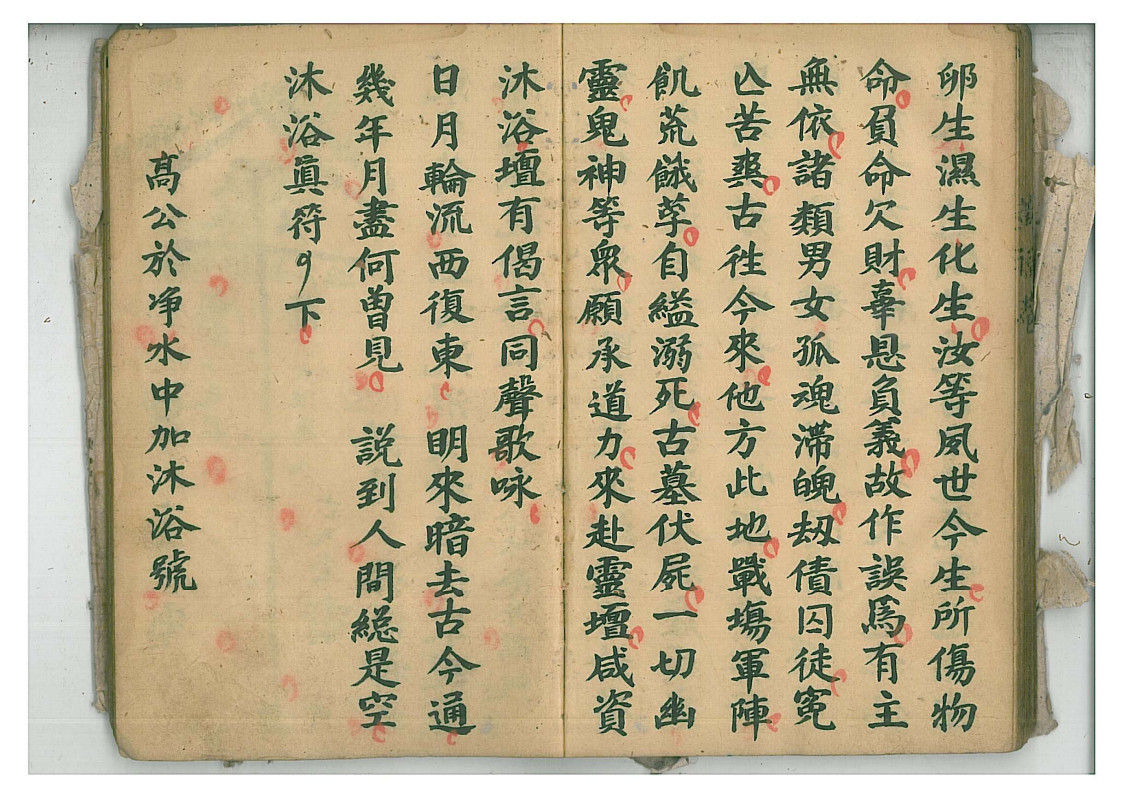 卵生濕生化生汝等夙世今生所傷物
命負命欠財辜恩負義故作誤為有主
無依諸類男女孤魂滯魄刼債囚徒冤
亾苦爽古往今來他方此地戰塲軍陣
飢荒餓莩自縊溺死古墓伏屍一切幽
靈鬼神等衆願承道力來赴靈壇咸資
沐浴壇有偈言同聲歌咏
日月輪流西復東 明來暗去古今通
幾年月盡何曽見 説到人間縂是空
沐浴眞符下
高公於净水中加沐浴號